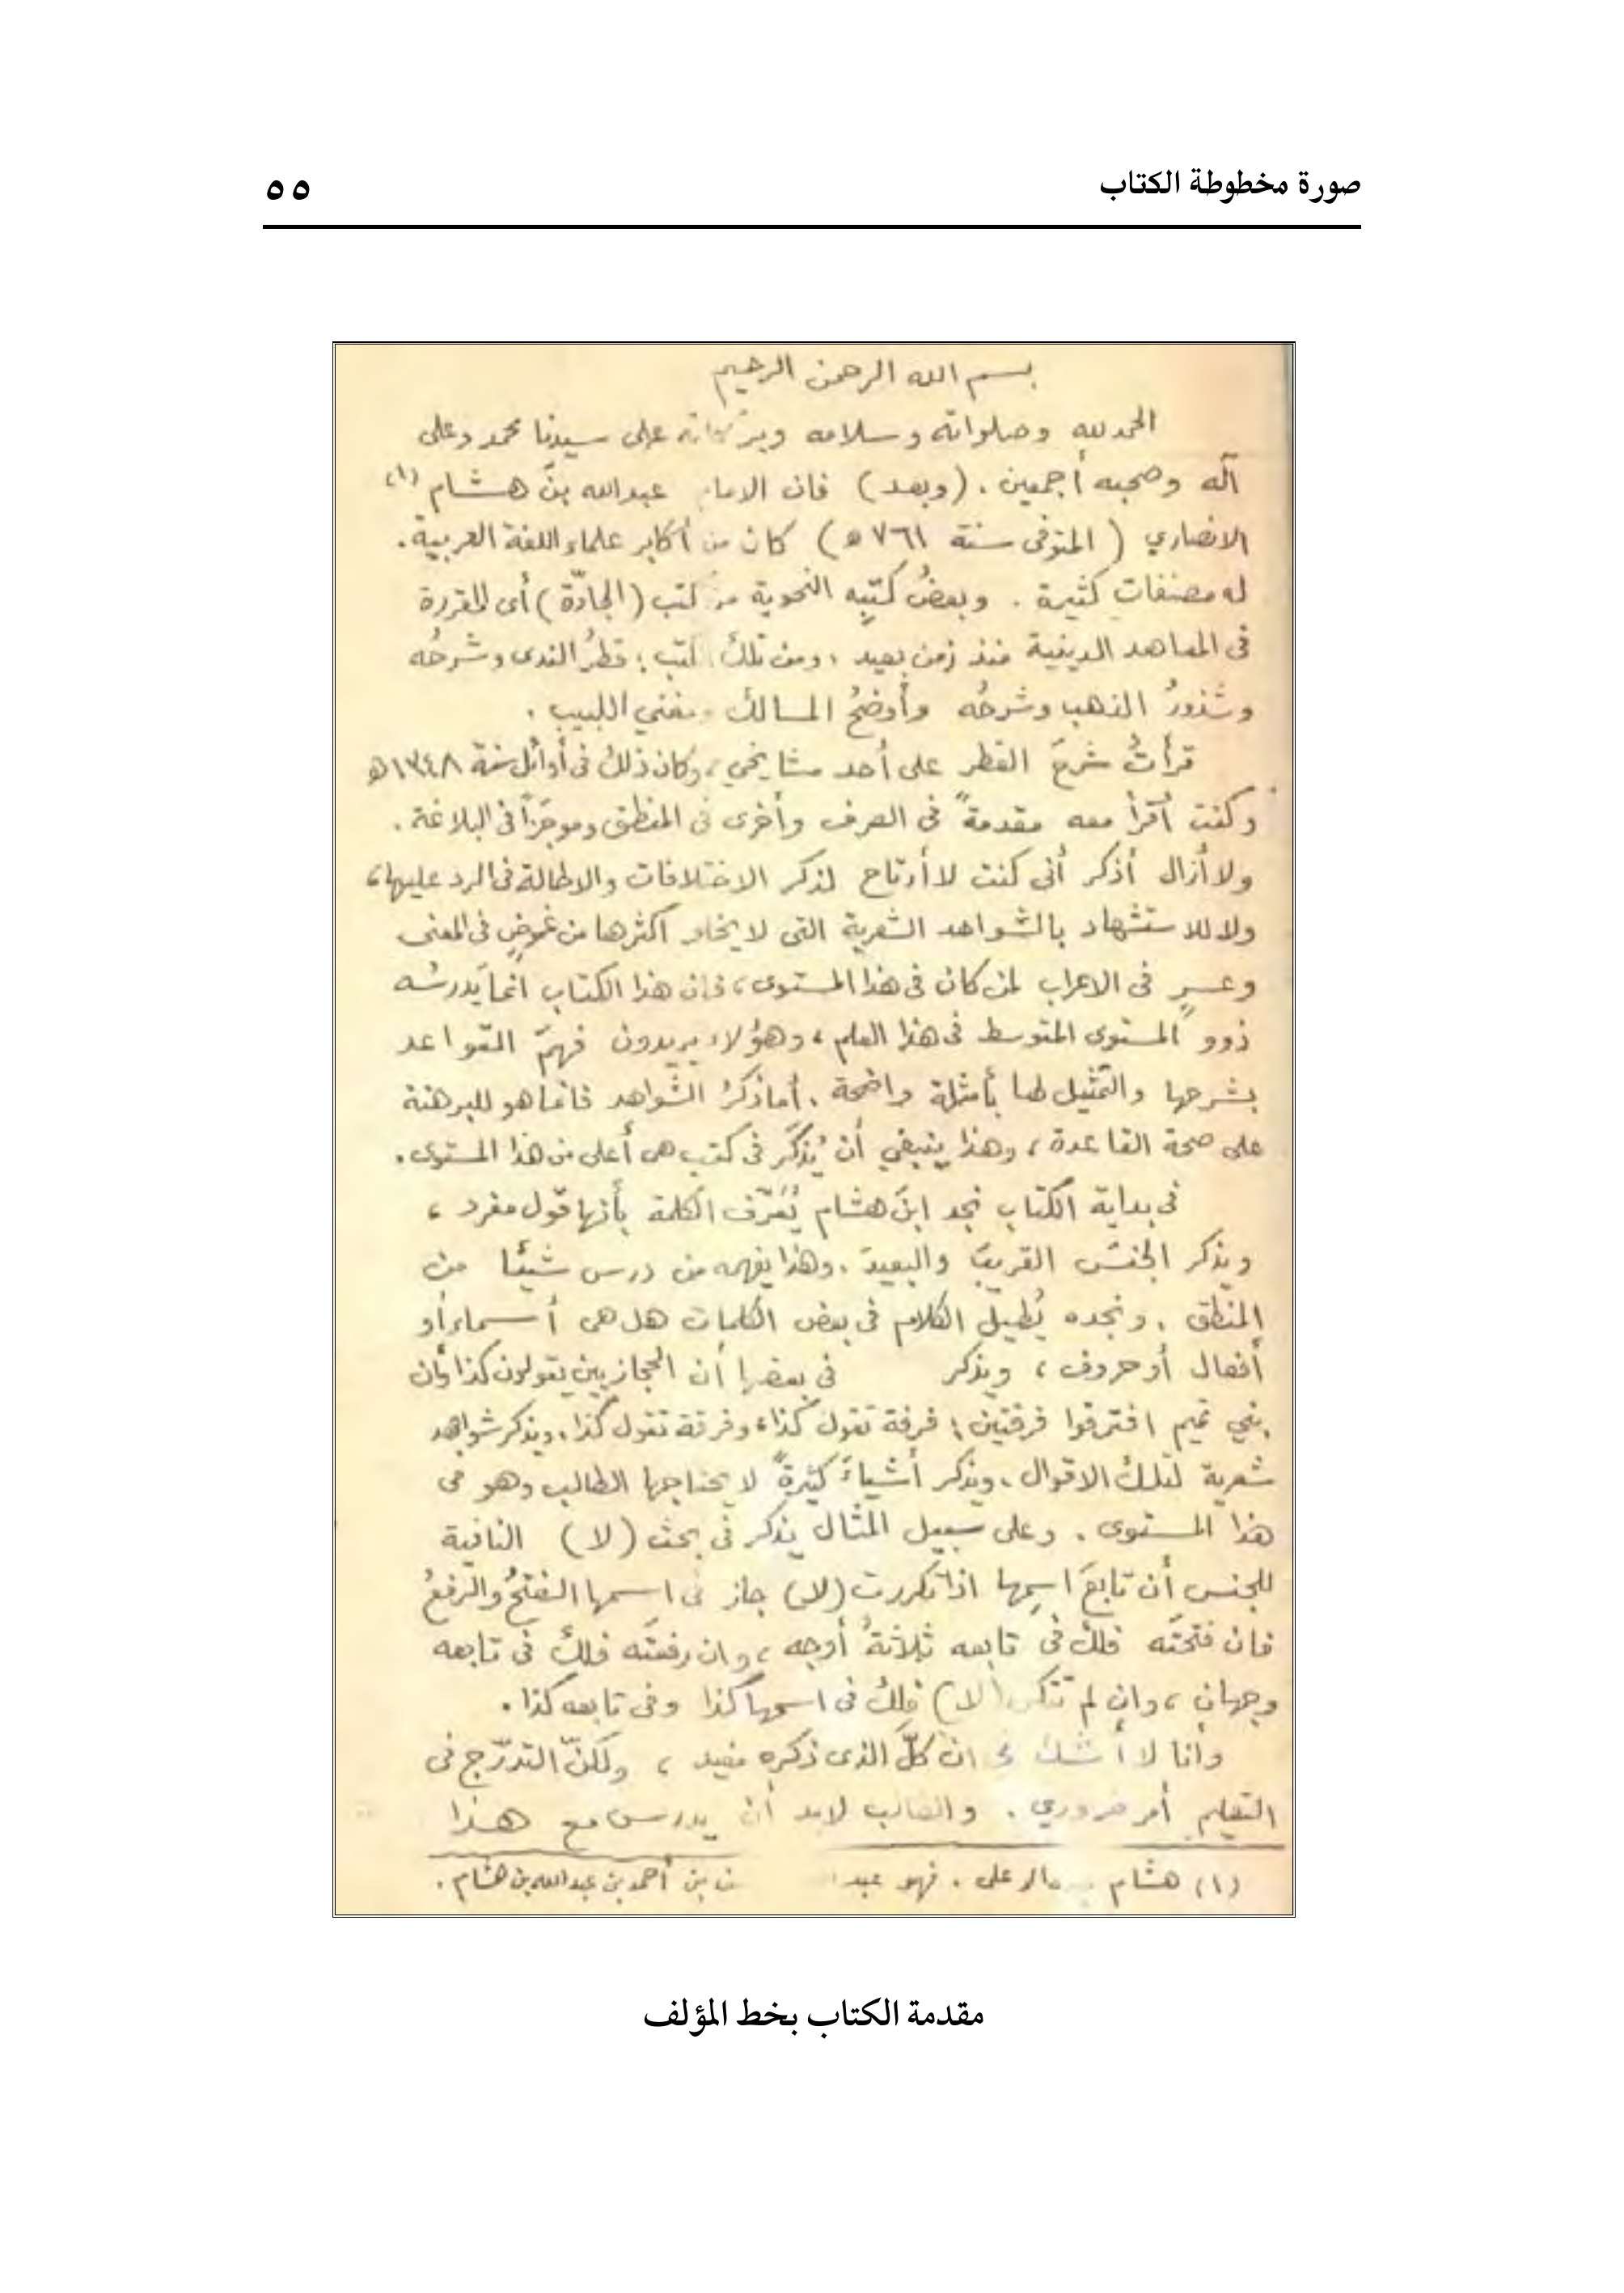 صورة مخطوطة الكتاب
٥٥
بسم الله الرحمن الرحيم
الحمد لله وصلواته وسلامه وبركاته على سيدنا محمد وعلى
آله وصحبه أجمعين . (وبعد) فان الامام عبدالله بنَ هشام (١)
الانصاري ( المتوفى سنة ٧٦١ ه ) كان من أكابر علماء اللغة العربية .
له مصنفات كثيرة . وبعضُ كتبِه النحوية من كتب (الجادّة) أى المقررة
فى المعاهد الدينية منذ زمن بعيد ، ومن تلك الكتب : قطرُ الندى وشرحُه
وشذورُ الذهب وشرحُه وأوضحُ المسالك ومغني اللبيب .
قرأتُ شرحَ القطر على أحد مشايخي ، وكان ذلك فى أوائل سنة ١٣٤٨ه
وكنت أقرأ معه مقدمةً فى الصرف وأخرى فى المنطق وموجَزاً فى البلاغة .
ولا أزال أذكر أنى كنت لا أرتاح لذكر الاختلافات والاطالة فى الرد عليها ،
ولا للاستشهاد بالشواهد الشعرية التى لا يخلو اكثرها من غموضٍ فى المعنى
وعسرٍ فى الاعراب لمن كان فى هذا المستوى ، فان هذا الكتاب انما يدرسُه
ذوو المستوى المتوسط فى هذا العلم ، وهؤلاء يريدون فهمَ القواعد
بشرحها والتمثيل لها بأمثلة واضحة . أما ذكرُ الشواهد فانما هو للبرهنة
على صحة القاعدة ، وهذا ينبغي أن يُذكَر فى كتب هى أعلى من هذا المستوى .
فى بداية الكتاب نجد ابنَ هشام يُعَرّف الكلمة بأنها قول مفرد ،
ويذكر الجنسَ القريبَ والبعيدَ . وهذا يفهمه من درس شيئًا من
المنطق . ونجده يُطيل الكلام فى بعض الكلمات هل هى أسماء أو
أفعال أو حروف ، ويذكر فى بعضها أن الحجازيين يقولون كذا وأن
بني تميم افترقوا فرقتين : فرقة تقول كذا ، وفرقة تقول كذا . ويذكر شواهد
شعرية لتلك الاقوال . ويذكر أشياءَ كثيرةً لا يحتاجها الطالب وهو فى
هذا المستوى . وعلى سبيل المثال يذكر فى بحث (لا) النافية
للجنس أن تابعَ اسمِها اذا تكررت (لا) جاز فى اسمها الفتحُ والرفعُ
فان فتحتَه فلك فى تابعه ثلاثةُ أوجه ، وان رفعتَه فلك فى تابعه
وجهان ، وان لم تتكرر (لا) فلك فى اسمها كذا وفى تابعه كذا .
وأنا لا أشك فى ان كلَّ الذى ذكره مفيد ، ولكنّ التدرّج فى
التعليم أمر ضروري . والطالب لابد أن يدرس مع هذا
(١) هشام على . فهو عبد بن أحمد بن عبدالله بن هشام .
مقدمة الكتاب بخط المؤلف